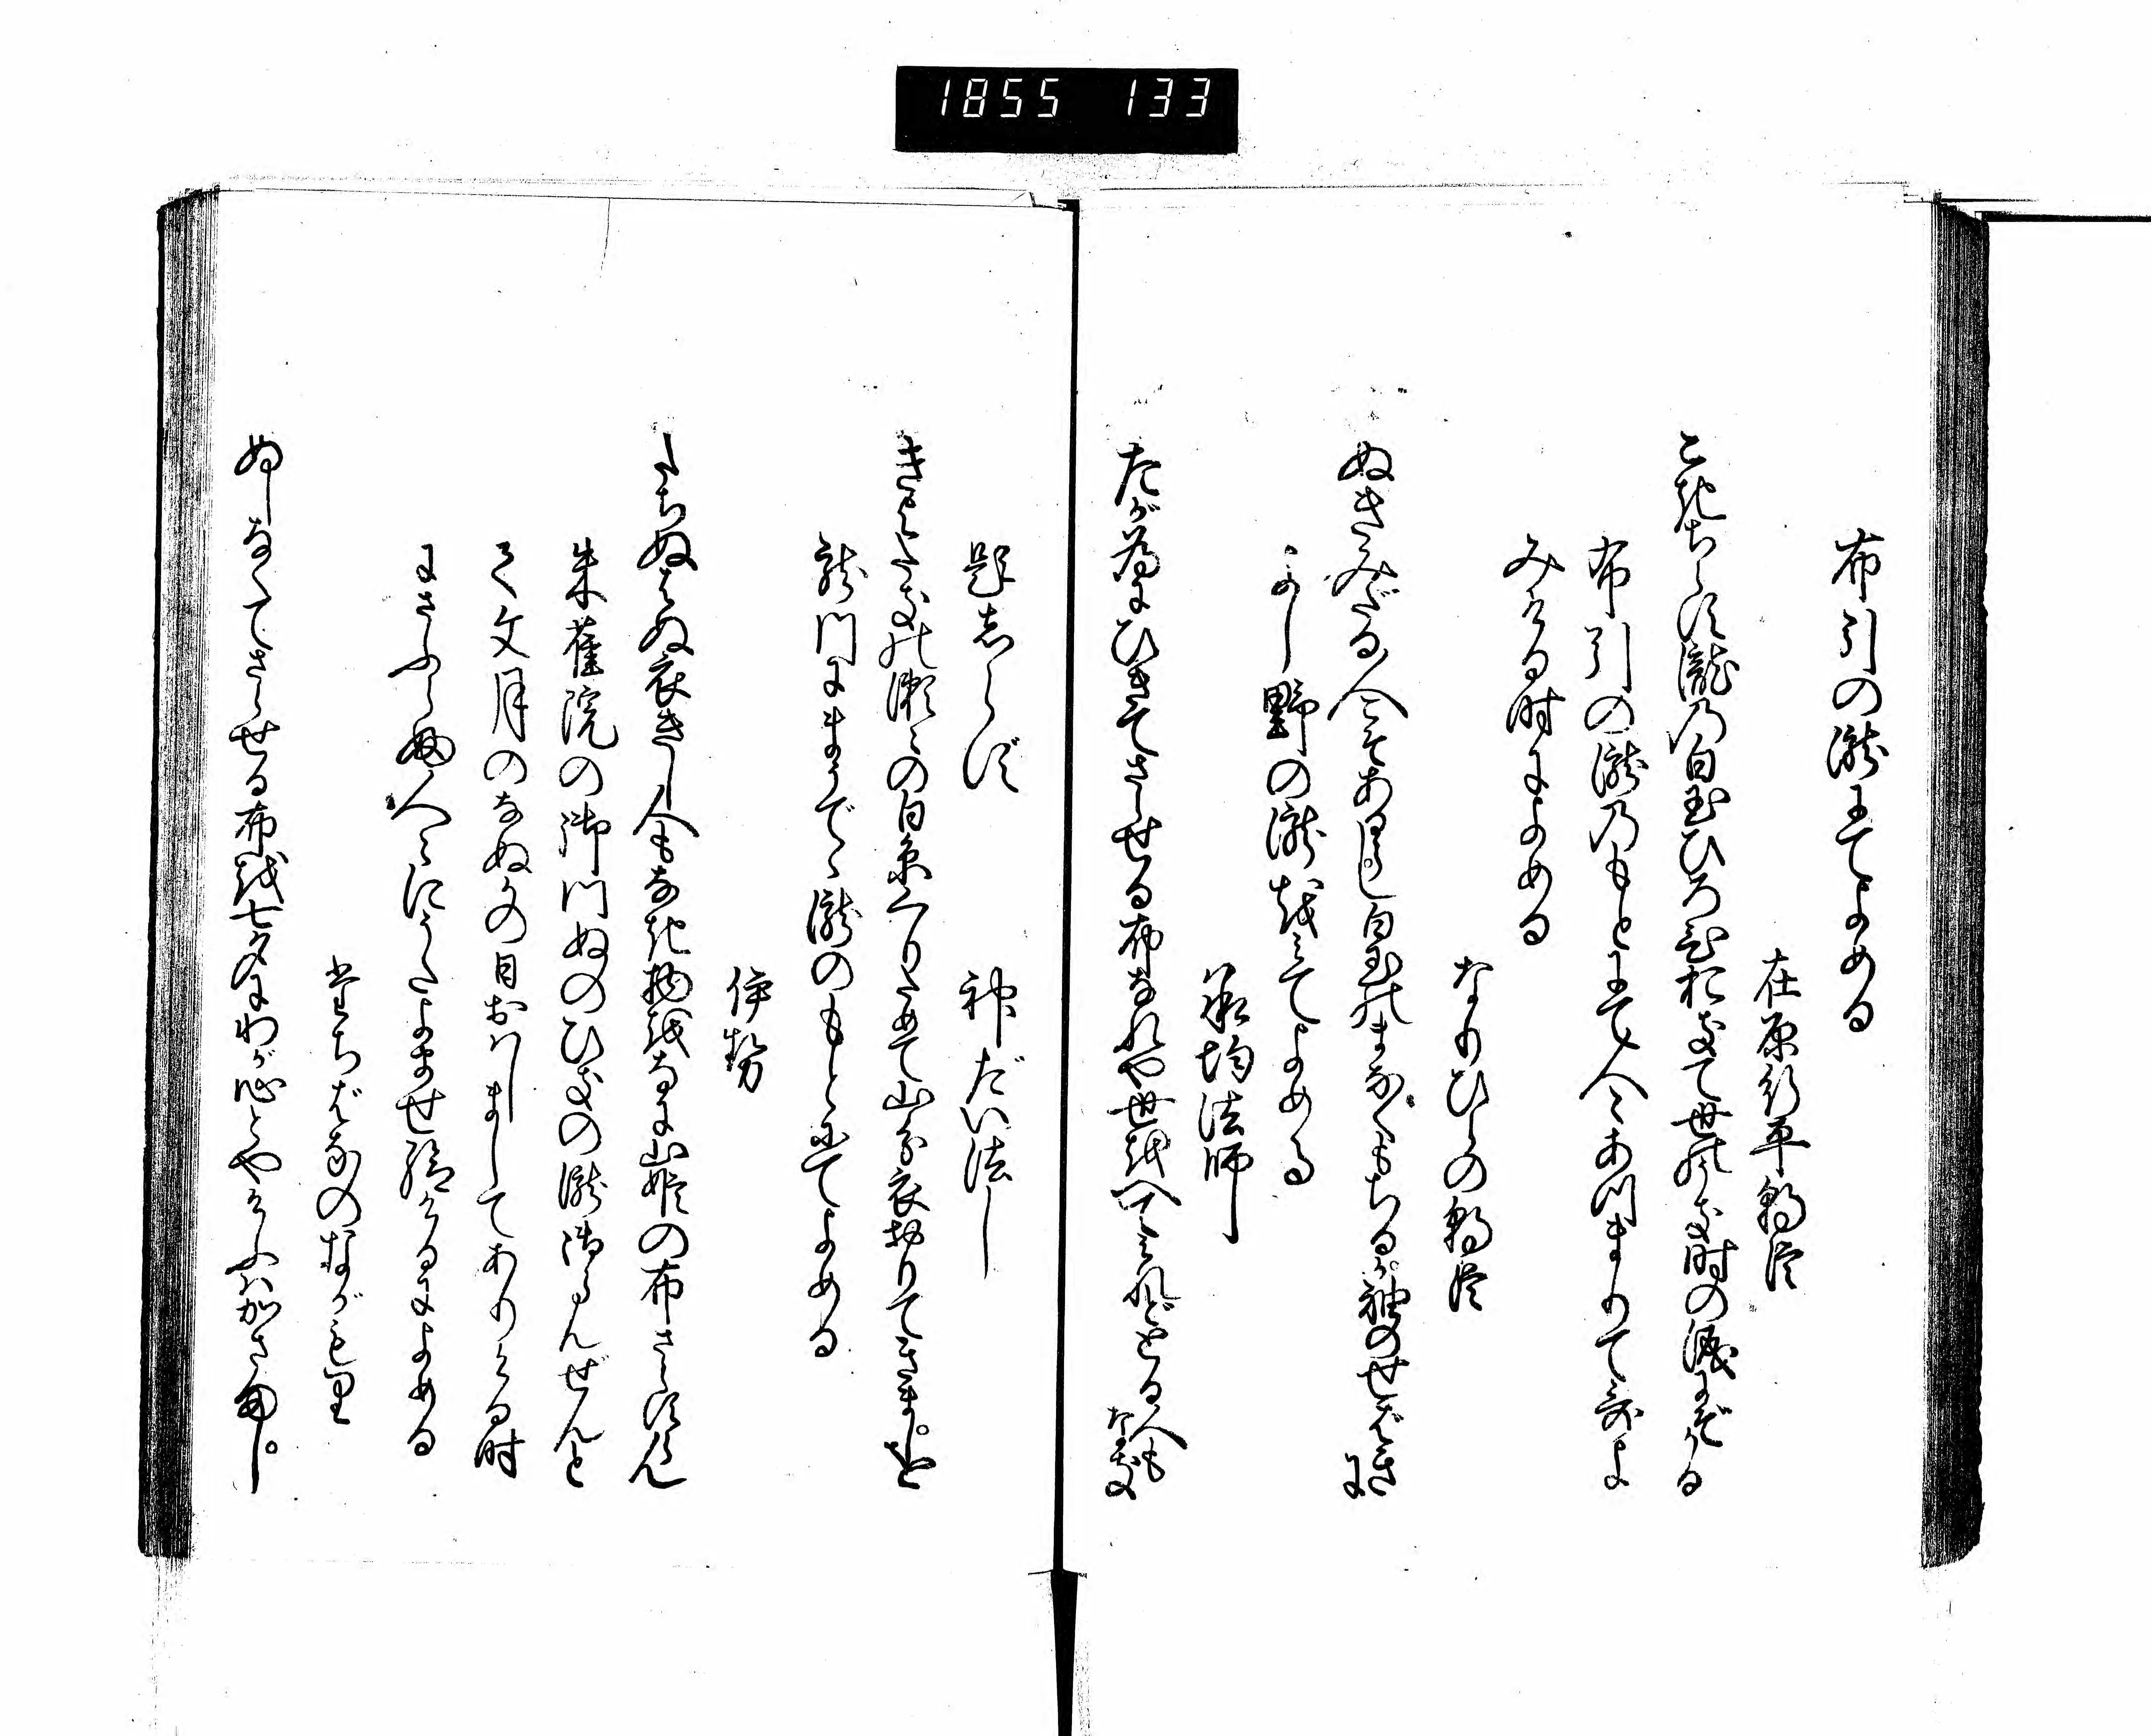 1855 133
布引の瀧にてよめる
在原行平朝臣
こきちらす瀧乃白玉ひろひおきて世のうき時の涙にぞかる
布引の瀧乃もとにて人〻あつまりて哥よ
みける時によめる
なりひらの朝臣
ぬきみだる人こそあるらし白玉のまなくもちるか袖のせばき
に
よし野の瀧をみてよめる
承均法師
たが為にひきてさらせる布なれや世をへてみれどとる人も
なき
題志らず
神だい法し
きよたきの瀬〻の白糸くりためて山分衣おりてきましを
龍門にまうでゝ瀧のもとにてよめる
伊勢
たちぬはぬ衣きし人もなき物をなに山姫の布さらすらん
朱雀院の御門ぬのひきの瀧御らんぜんと
て文月のなぬかの日おはしましてありける時
にさふらふ人〻にうたよませ給けるによめる
たちばなのながもり
ぬしなくてさらせる布を七夕にわが心とやけふはかさまし